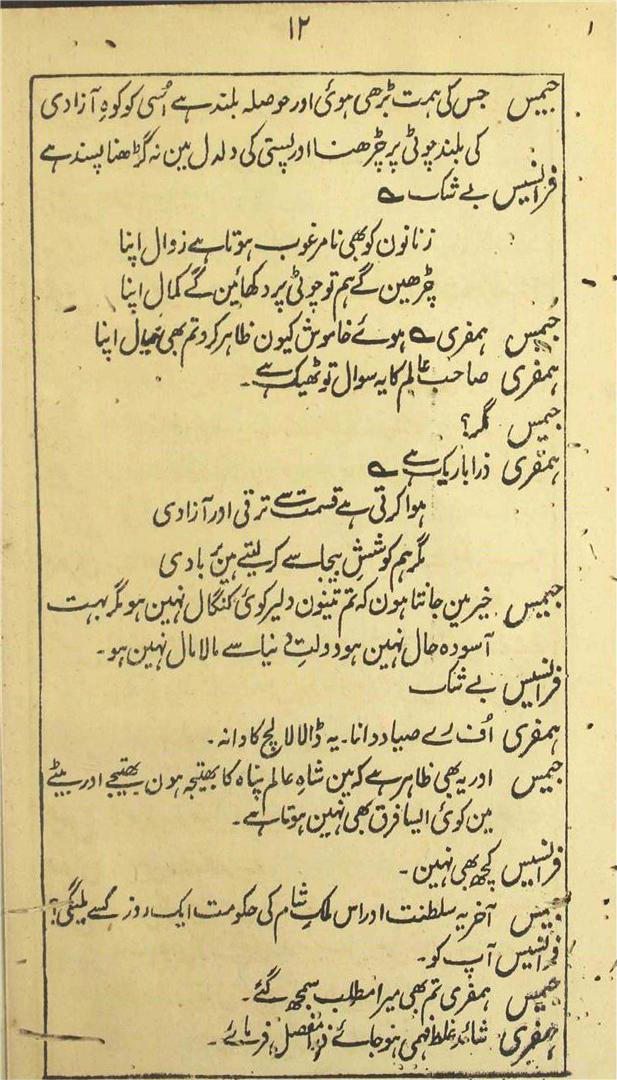 ۱۲
جیمس جس کی ہمت بڑھی ہوئی اور حوصلہ بلند ہے اُسی کو کوہِ آزادی
کی بلند چوٹی پر چڑھنا اور پستی کی دلدل مین نہ گڑھنا پسند ہے
فرانسیس بے شک ؎
زنانون کو بھی نامرغوب ہوتا ہے زوال اپنا
چڑھین گے ہم تو چوٹی پر دکھائین گے کمال اپنا
جیمس ہمفری ؎ ہوئے خاموش کیون ظاہر کرو تم بھی خیال اپنا
ہمفری صاحب عالم کا یہ سوال تو ٹھیک ہے۔
جیمس مگر؟
ہمفری ذرا باریک ہے ؎
ہوا کرتی ہے قسمت سے ترقی اور آزادی
مگر ہم کوششِ بیجا سے کر لیتے ہین بربادی
جیمس خیر مین جانتا ہون کہ تم تینون دلیر کوئی کنگال نہین ہو مگر بہت
آسودہ حال نہین ہو دولتِ دنیا سے مالا مال نہین ہو۔
فرانسیس بے شک
ہمفری اُف رے صیاد دانا۔ یہ ڈالا لالچ کا دانہ۔
جیمس اور یہ بھی ظاہر ہے کہ مین شاہِ عالم پناہ کا بھتیجہ ہون بھتیجے اور بیٹے
مین کوئی ایسا فرق بھی نہین ہوتا ہے۔
فرانسیس کچھ بھی نہین۔
جیمس آخر یہ سلطنت اور اس ملکِ شام کی حکومت ایک روز کسے ملیگی؟
فرانسیس آپ کو۔
جیمس ہمفری تم بھی میرا مطلب سمجھ گئے۔
ہمفری شائد غلط فہمی ہو جائے ذرا مفصل فرمائے۔